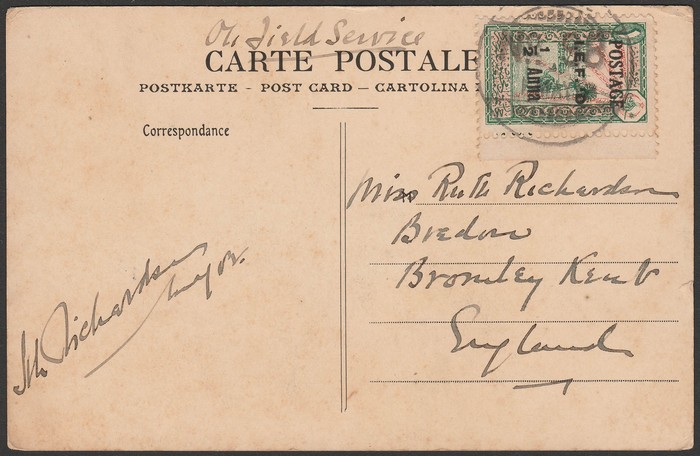 On Field Service
CARTE POSTALE
POSTKARTE - POST CARD — CARTOLINA
Correspondance
POSTAGE
I.E.F. D
1/2 Anna
Miss Ruth Richardson
Bredon
Bromley Kent
England
Richardson
Major